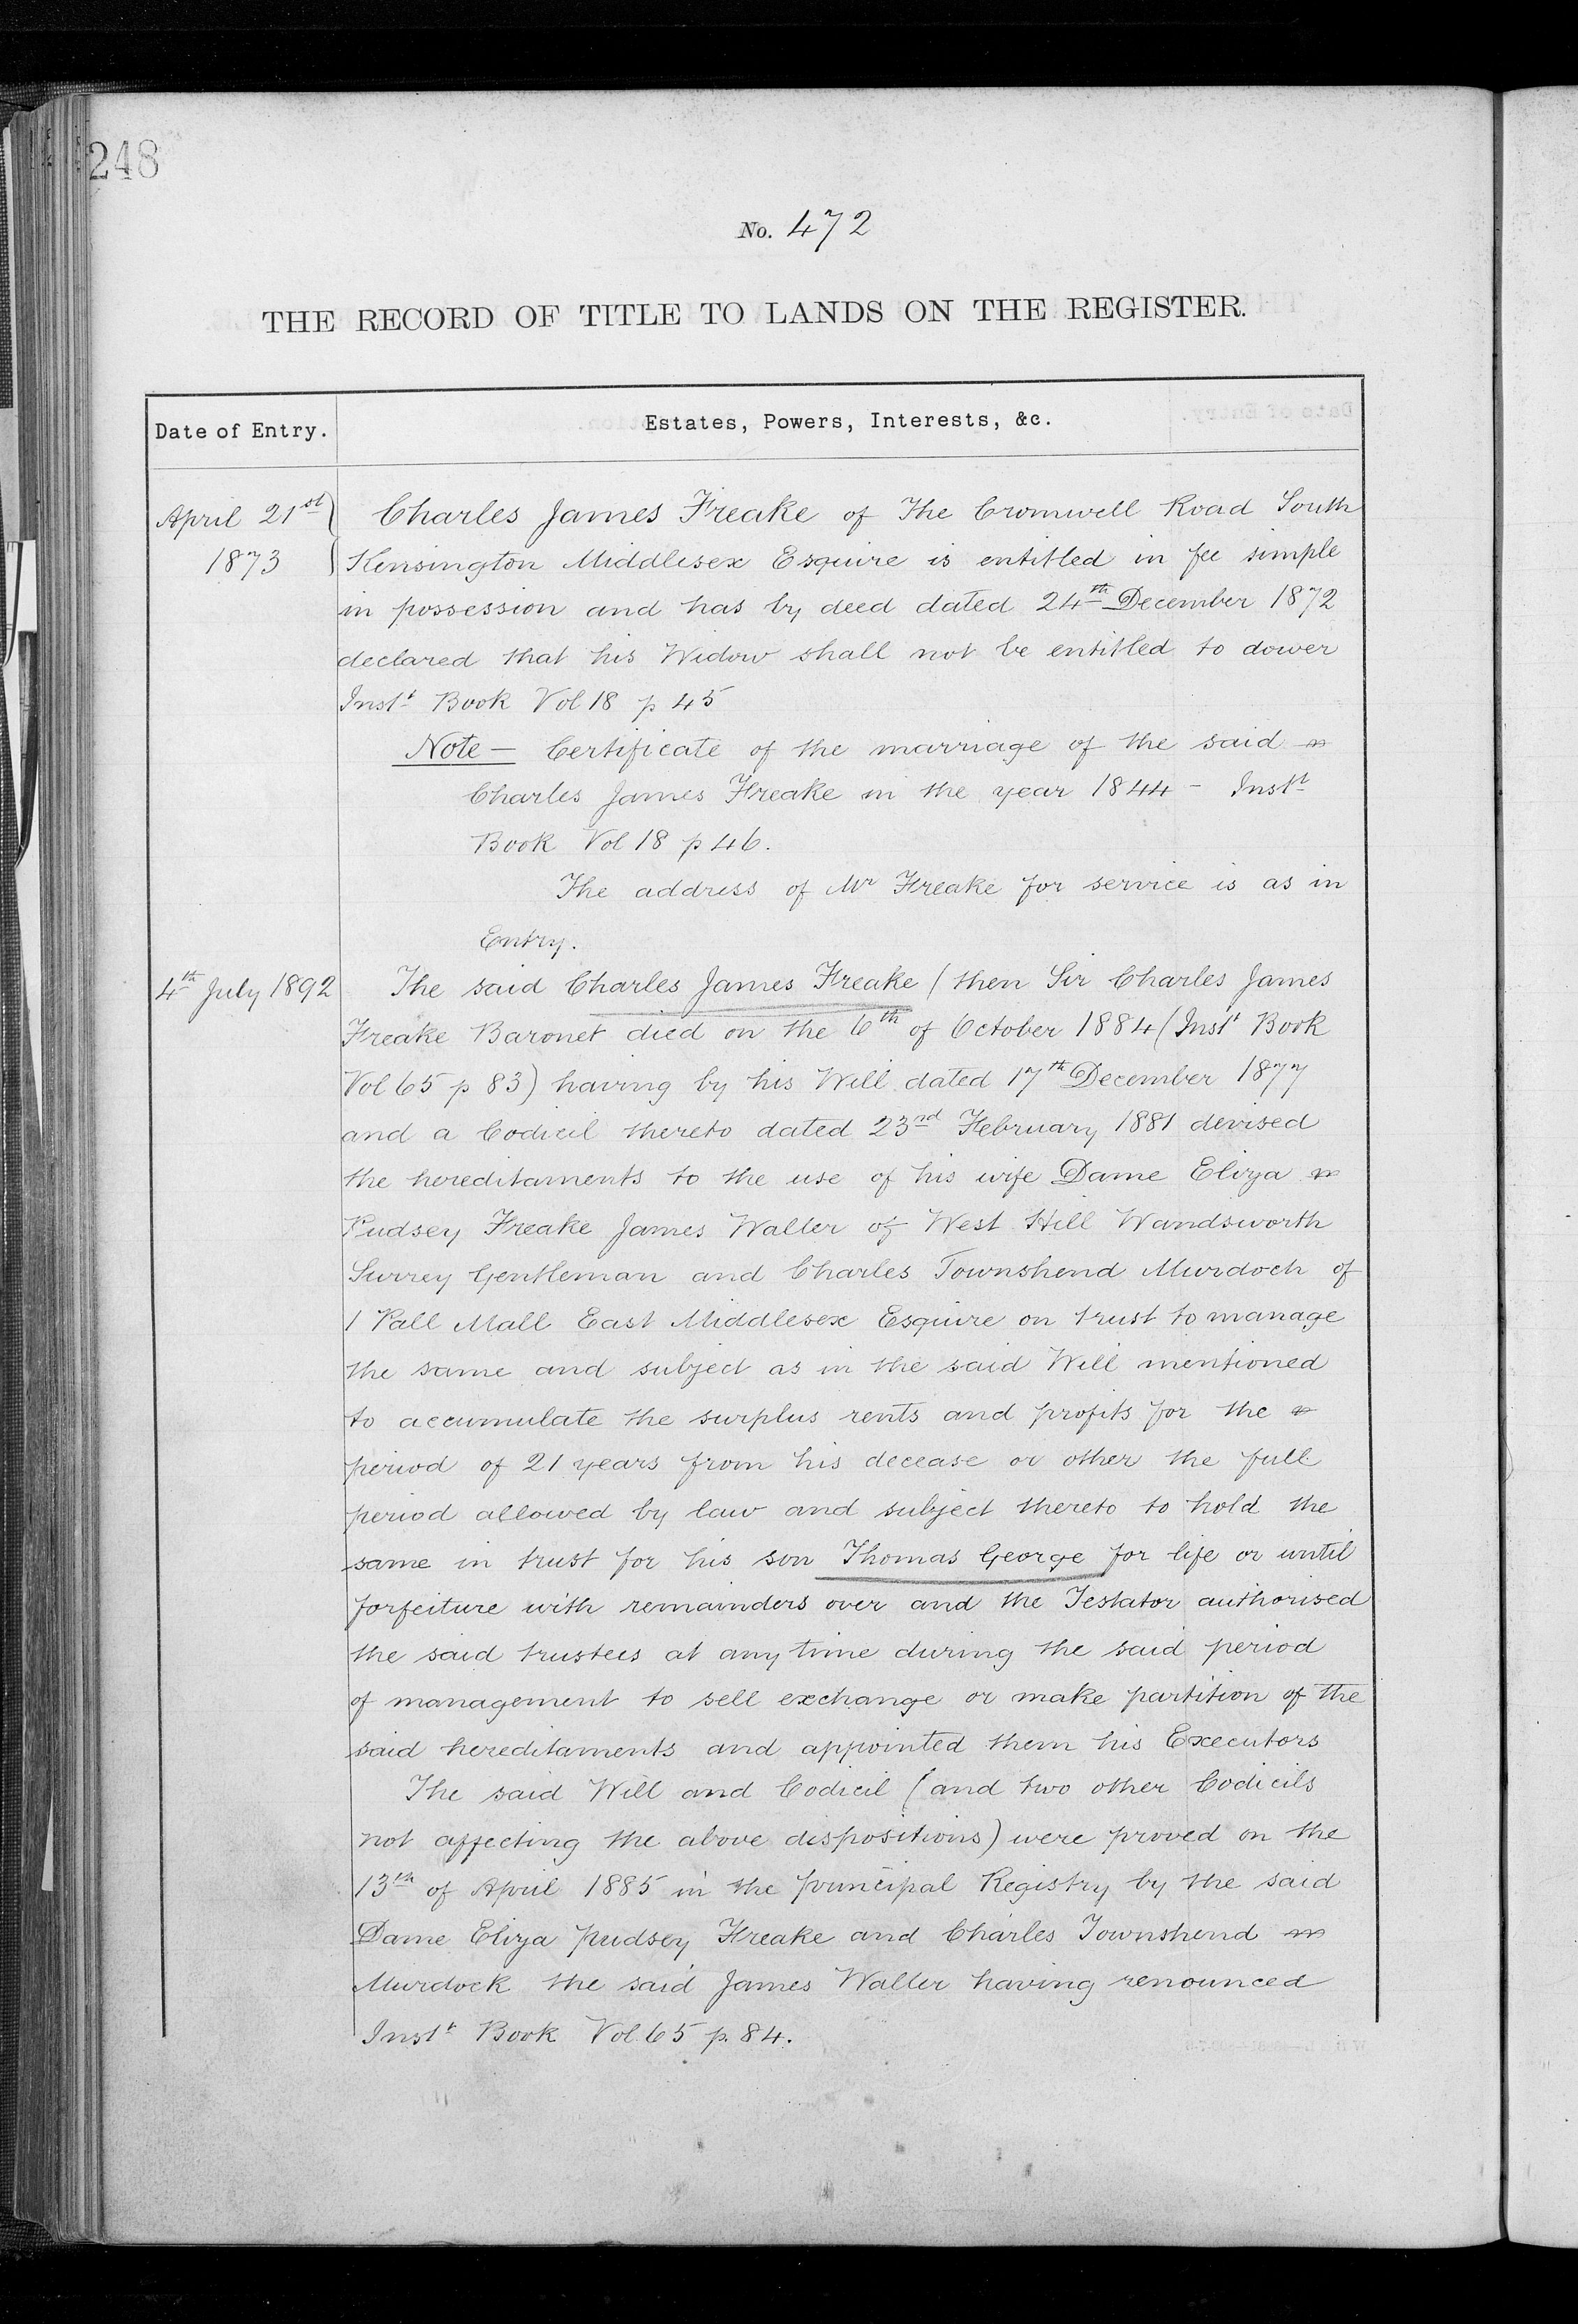 248
No. 472
THE RECORD OF TITLE TO LANDS ON THE REGISTER.
Date of Entry.
Estates, Powers, Interests, &c.
April 21st
1873
Charles James Freake of The Cromwell Road South
Kensington Middlesex Esquire is entitled in fee simple
in possession and has by deed dated 24th December 1872
declared that his Widow shall not be entitled to dower
Instt Book Vol 18 p 45
Note — Certificate of the marriage of the said
Charles James Freake in the year 1844 - Instt
Book Vol 18 p 46.
The address of Mr Freake for service is as in
Entry.
4th July 1892
The said Charles James Freake (then Sir Charles James
Freake Baronet died on the 6th of October 1884 (Instt Book
Vol 65 p 83) having by his Will dated 17th December 1877
and a Codicil thereto dated 23rd February 1881 devised
the hereditaments to the use of his wife Dame Eliza
Pudsey Freake James Waller of West Hill Wandsworth
Surrey Gentleman and Charles Townshend Murdoch of
1 Pall Mall East Middlesex Esquire on trust to manage
the same and subject as in the said Will mentioned
to accumulate the surplus rents and profits for the
period of 21 years from his decease or other the full
period allowed by law and subject thereto to hold the
same in trust for his son Thomas George for life or until
forfeiture with remainders over and the Testator authorised
the said trustees at any time during the said period
of management to sell exchange or make partition of the
said hereditaments and appointed them his Executors
The said Will and Codicil (and two other Codicils
not affecting the above dispositions) were proved on the
13th of April 1885 in the principal Registry by the said
Dame Eliza pudsey Freake and Charles Townshend
Murdock the said James Waller having renounced
Instt Book Vol. 65 p. 84.